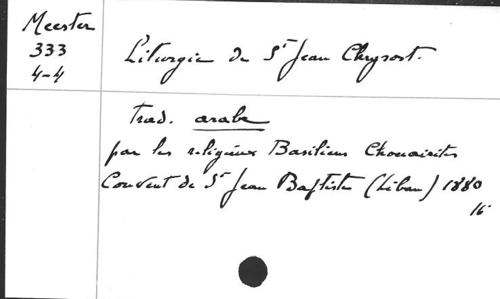 Meester
333
4-4
Liturgie de St Jean Chrysost.
Trad. arabe
par les religieux Basiliens Chouairites
Couvent de St Jean Baptiste (Liban) 1880
16